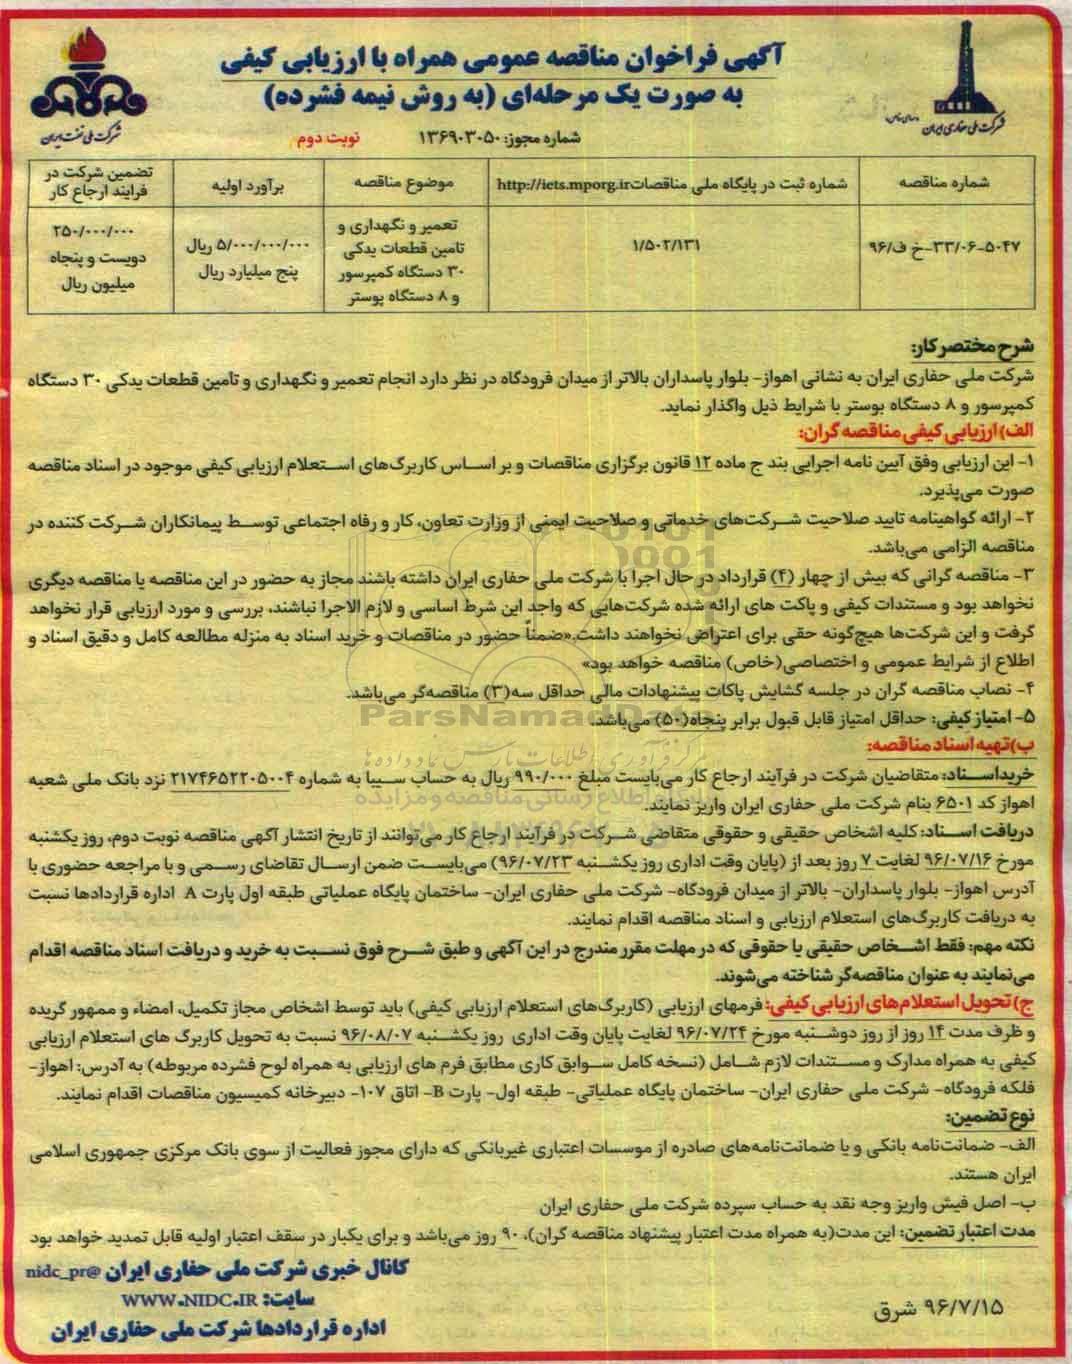 آگهی فراخوان مناقصه عمومی همراه با ارزیابی کیفی
به صورت یک مرحله‌ای (به روش نیمه فشرده)
شرکت ملی حفاری ایران
شرکت ملی نفت ایران
شماره مجوز: ۱۳۶۹۰۳۰۵۰
نوبت دوم
شماره مناقصه
شماره ثبت در پایگاه ملی مناقصات http://iets.mporg.ir
موضوع مناقصه
برآورد اولیه
تضمین شرکت در فرایند ارجاع کار
۳۳/۰۶-۵۰۴۷-خ ف/۹۶
۱/۵۰۲/۱۳۱
تعمیر و نگهداری و
تامین قطعات یدکی
۳۰ دستگاه کمپرسور
و ۸ دستگاه پوستر
۵/۰۰۰/۰۰۰/۰۰۰ ریال
پنج میلیارد ریال
۲۵۰/۰۰۰/۰۰۰
دویست و پنجاه
میلیون ریال
شرح مختصر کار:
شرکت ملی حفاری ایران به نشانی اهواز- بلوار پاسداران بالاتر از میدان فرودگاه در نظر دارد انجام تعمیر و نگهداری و تأمین قطعات یدکی ۳۰ دستگاه
کمپرسور و ۸ دستگاه بوستر با شرایط ذیل واگذار نماید.
الف) ارزیابی کیفی مناقصه گران:
۱- این ارزیابی وفق آیین نامه اجرایی بند ج ماده ۱۲ قانون برگزاری مناقصات و بر اساس کاربرگ‌های استعلام ارزیابی کیفی موجود در اسناد مناقصه
صورت می‌پذیرد.
۲- ارائه گواهینامه تایید صلاحیت شرکت‌های خدماتی و صلاحیت ایمنی از وزارت تعاون، کار و رفاه اجتماعی توسط پیمانکاران شرکت کننده در
مناقصه الزامی می‌باشد.
۳- مناقصه گرانی که بیش از چهار (۴) قرارداد در حال اجرا با شرکت ملی حفاری ایران داشته باشند مجاز به حضور در این مناقصه یا مناقصه دیگری
نخواهد بود و مستندات کیفی و پاکت های ارائه شده شرکت‌هایی که واجد این شرط اساسی و لازم الاجرا نباشند، بررسی و مورد ارزیابی قرار نخواهد
گرفت و این شرکت‌ها هیچ‌گونه حقی برای اعتراض نخواهند داشت.«ضمناً حضور در مناقصات و خرید اسناد به منزله مطالعه کامل و دقیق اسناد و
اطلاع از شرایط عمومی و اختصاصی(خاص) مناقصه خواهد بود»
۴- نصاب مناقصه گران در جلسه گشایش پاکات پیشنهادات مالی حداقل سه(۳) مناقصه‌گر می‌باشد.
۵- امتیاز کیفی: حداقل امتیاز قابل قبول برابر پنجاه(۵۰) می‌باشد.
ParsNamadData
ب) تهیه اسناد مناقصه:
خرید اسناد: متقاضیان شرکت در فرآیند ارجاع کار می‌بایست مبلغ ۹۹۰/۰۰۰ ریال به حساب سیبا به شماره ۲۱۷۴۶۵۲۲۰۵۰۰۴ نزد بانک ملی شعبه
اهواز کد ۶۵۰۱ بنام شرکت ملی حفاری ایران واریز نمایند.
دریافت اسناد: کلیه اشخاص حقیقی و حقوقی متقاضی شرکت در فرآیند ارجاع کار می‌توانند از تاریخ انتشار آگهی مناقصه نوبت دوم، روز یکشنبه
مورخ ۹۶/۰۷/۱۶ لغایت ۷ روز بعد از (پایان وقت اداری روز یکشنبه ۹۶/۰۷/۲۳) می‌بایست ضمن ارسال تقاضای رسمی و با مراجعه حضوری با
آدرس اهواز- بلوار پاسداران- بالاتر از میدان فرودگاه- شرکت ملی حفاری ایران- ساختمان پایگاه عملیاتی طبقه اول پارت A اداره قراردادها نسبت
به دریافت کاربرگ‌های استعلام ارزیابی و اسناد مناقصه اقدام نمایند.
نکته مهم: فقط اشخاص حقیقی یا حقوقی که در مهلت مقرر مندرج در این آگهی و طبق شرح فوق نسبت به خرید و دریافت اسناد مناقصه اقدام
می‌نمایند به عنوان مناقصه‌گر شناخته می‌شوند.
ج) تحویل استعلام‌های ارزیابی کیفی: فرمهای ارزیابی (کاربرگ‌های استعلام ارزیابی کیفی) باید توسط اشخاص مجاز تکمیل، امضاء و ممهور گریده
و ظرف مدت ۱۴ روز از روز دوشنبه مورخ ۹۶/۰۷/۲۴ لغایت پایان وقت اداری روز یکشنبه ۹۶/۰۸/۰۷ نسبت به تحویل کاربرگ های استعلام ارزیابی
کیفی به همراه مدارک و مستندات لازم شامل (نسخه کامل سوابق کاری مطابق فرم های ارزیابی به همراه لوح فشرده مربوطه) به آدرس: اهواز-
فلکه فرودگاه- شرکت ملی حفاری ایران- ساختمان پایگاه عملیاتی- طبقه اول- پارت B- اتاق ۱۰۷- دبیرخانه کمیسیون مناقصات اقدام نمایند.
نوع تضمین:
الف- ضمانت‌نامه بانکی و یا ضمانت‌نامه‌های صادره از موسسات اعتباری غیربانکی که دارای مجوز فعالیت از سوی بانک مرکزی جمهوری اسلامی
ایران هستند.
ب- اصل فیش واریز وجه نقد به حساب سپرده شرکت ملی حفاری ایران
مدت اعتبار تضمین: این مدت(به همراه مدت اعتبار پیشنهاد مناقصه گران)، ۹۰ روز می‌باشد و برای یکبار در سقف اعتبار اولیه قابل تمدید خواهد بود
کانال خبری شرکت ملی حفاری ایران @nidc_pr
سایت: WWW.NIDC.IR
اداره قراردادها شرکت ملی حفاری ایران
۹۶/۷/۱۵ شرق